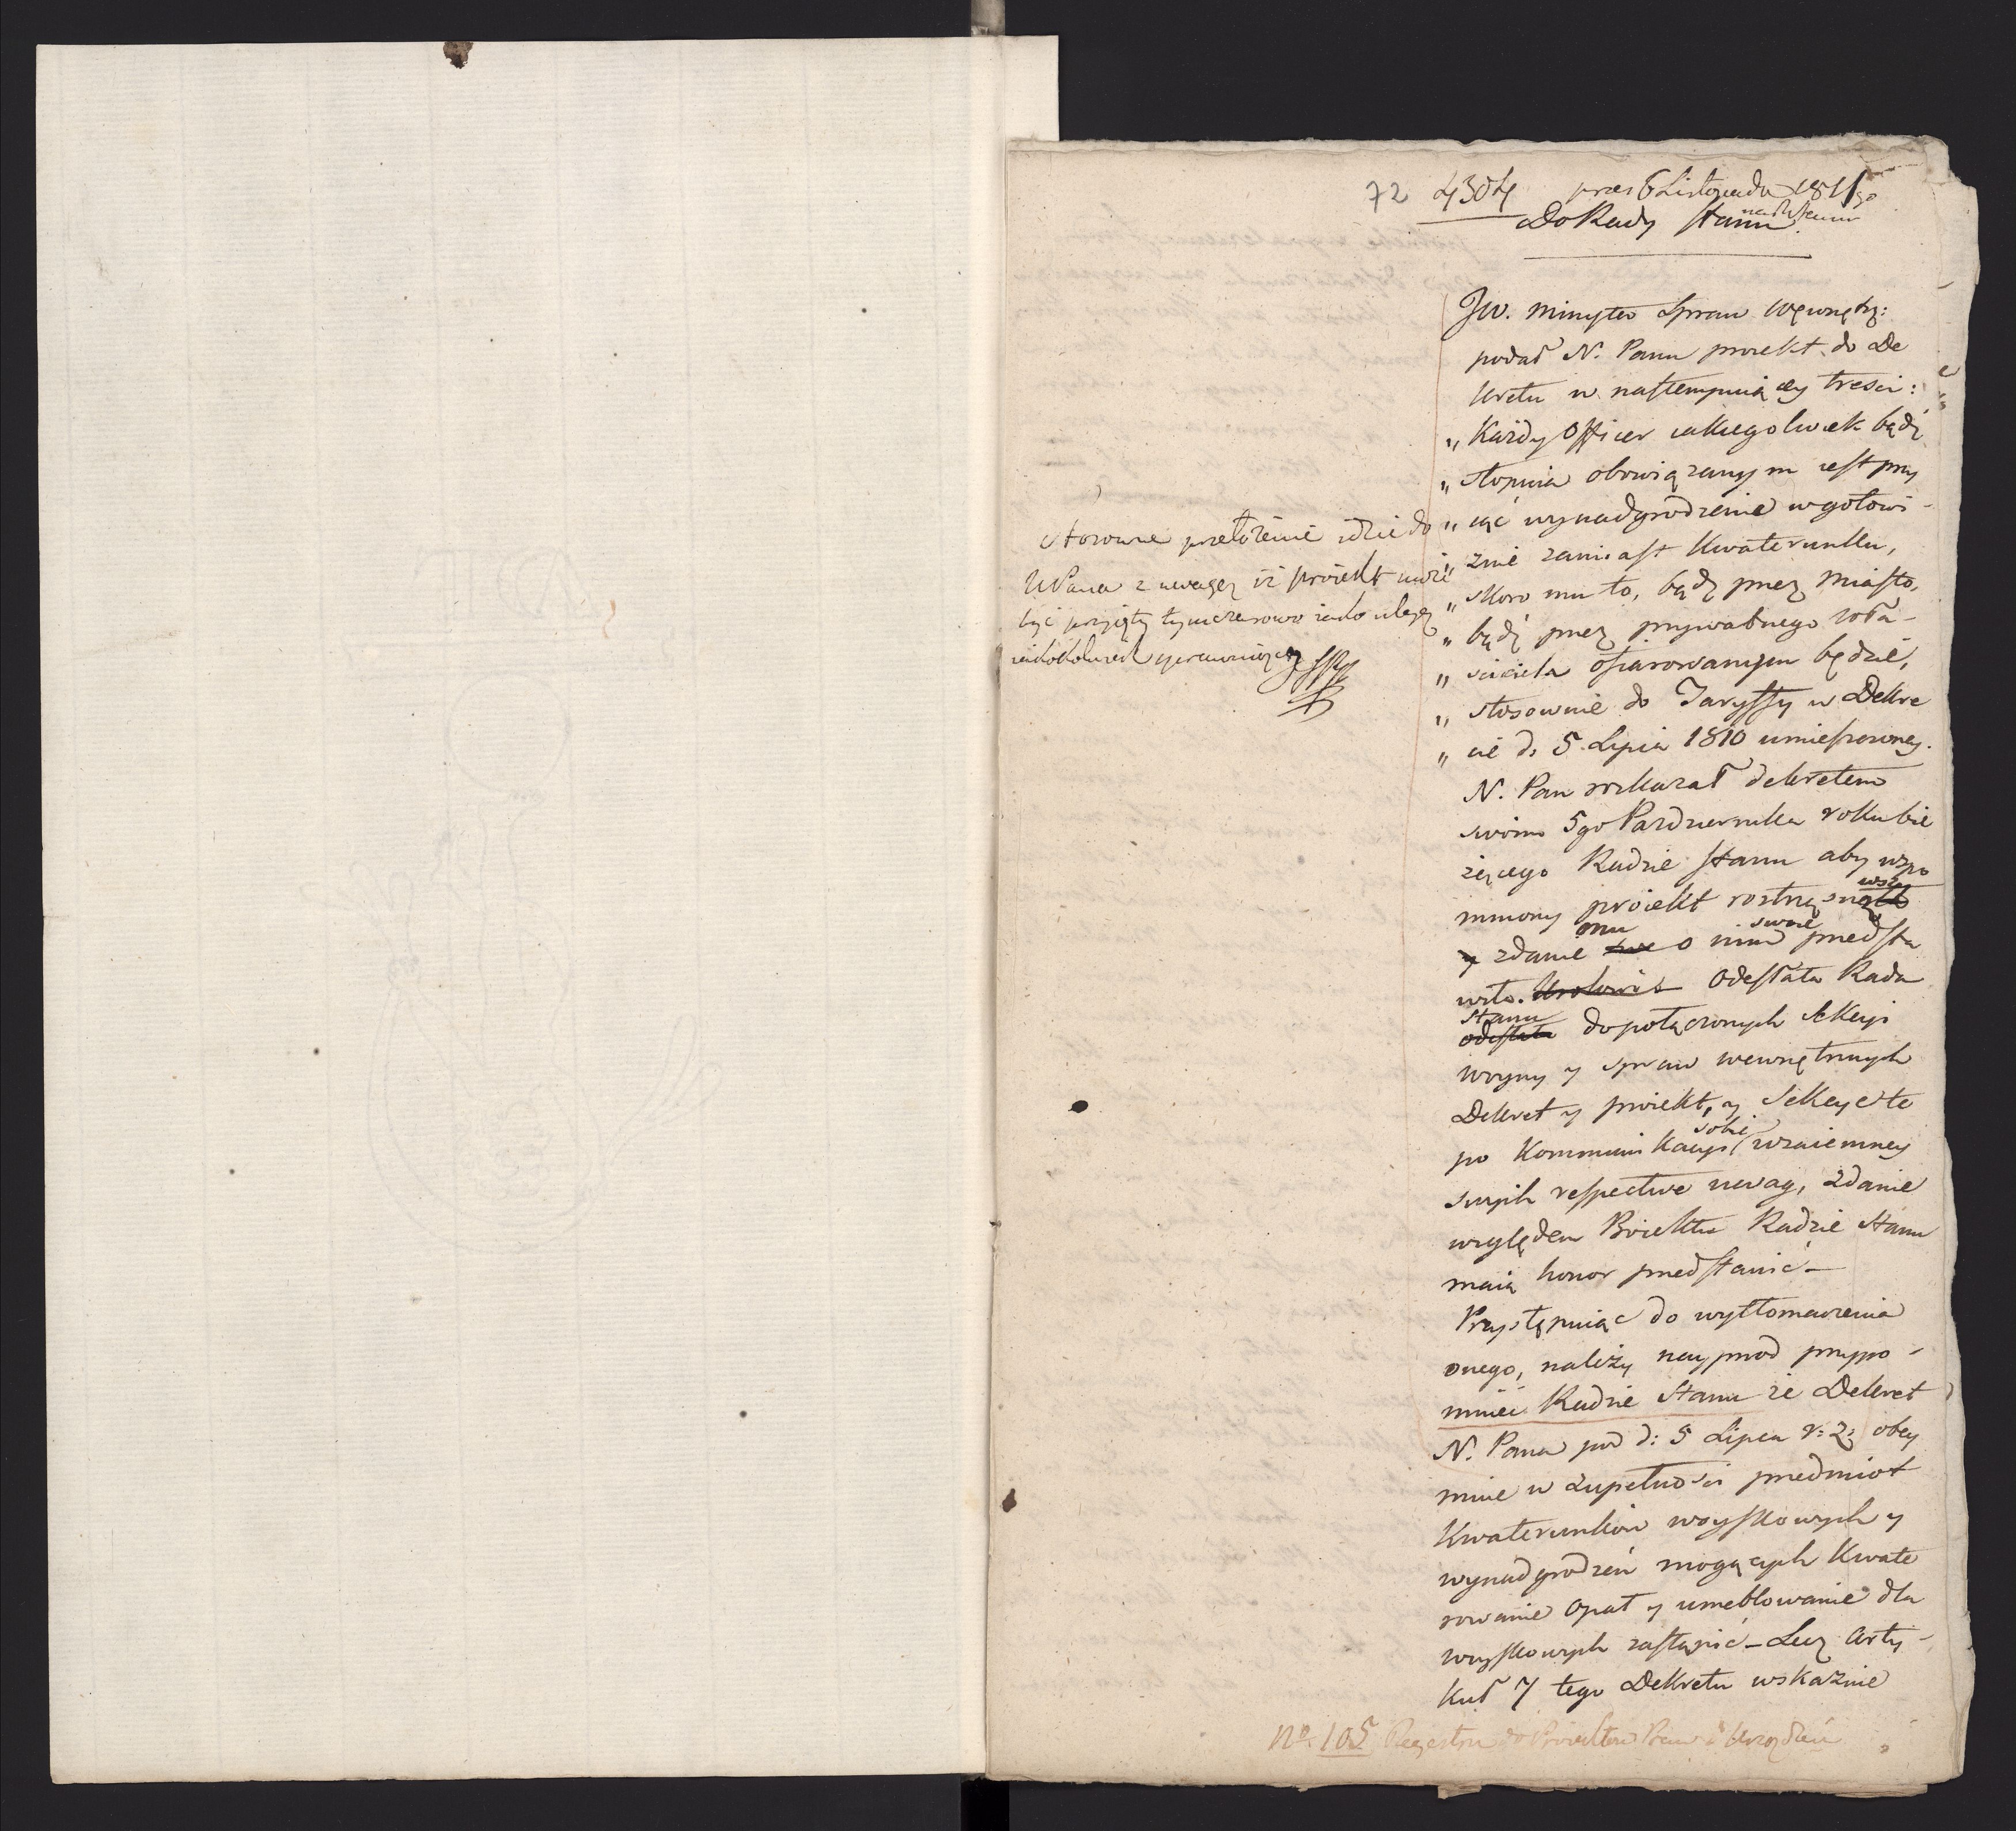 72 4304 præs 6 Listopada 1811go
Do Rady Stanu
JW. Minister Spraw Wewnętrz:
podał N. Panu proiekt do De
kretu w nastempuiącey tresci:
„ Każdy Officer iakiegolwiek bądź
„ stopnia obowiązanym iest przy
„ iąć wynadgrodzenie w gotowi-
„ znie zamiast Kwaterunku,
„ skoro mu to, bądź przez Miasto,
„ bądź przez prywatnego wła-
„ sciciela ofiarowanym będzie,
„ stosownie do Taryffy w Dekre
„ cie d. 5. Lipca 1810 umieszczoney.
N. Pan rozkazał dekretem
swoim 5go Pazdziernika roku bie
żącego Radzie Stanu aby wspo
mniony proiekt roztrząsnąwszy
zdanie mu o nim swoie przedsta
wiła. Odesłała Rada
Stanu do połączonych Sekcyi
Woyny y spraw wewnętrznych
Dekret y proiekt, y Sekcye te
po Kommunikacyi sobie wzaiemney
swych respective uwag, zdanie
względem Proiektu Radzie Stanu
maią honor przedstawić –
Przystępuiąc do wytłomaczenia
onego, należy nayprzod przypo-
mnieć Radzie Stanu że Dekret
N. Pana pod d: 5 Lipca r: z: obey
muie w zupełności przedmiot
Kwaterunków woyskowych y
wynadgrodzeń mogących Kwate
rowanie opał y umeblowanie dla
woyskowych zastąpić – Lecz Arty-
kuł 7 tego Dekretu wskazuie
Stosowne przełożenie idzie do
NPana z uwagą iż proiekt może
być przyięty tymczasowo iako ulegaj
No. 105 Regestru do Proiektów Praw i Urządzeń